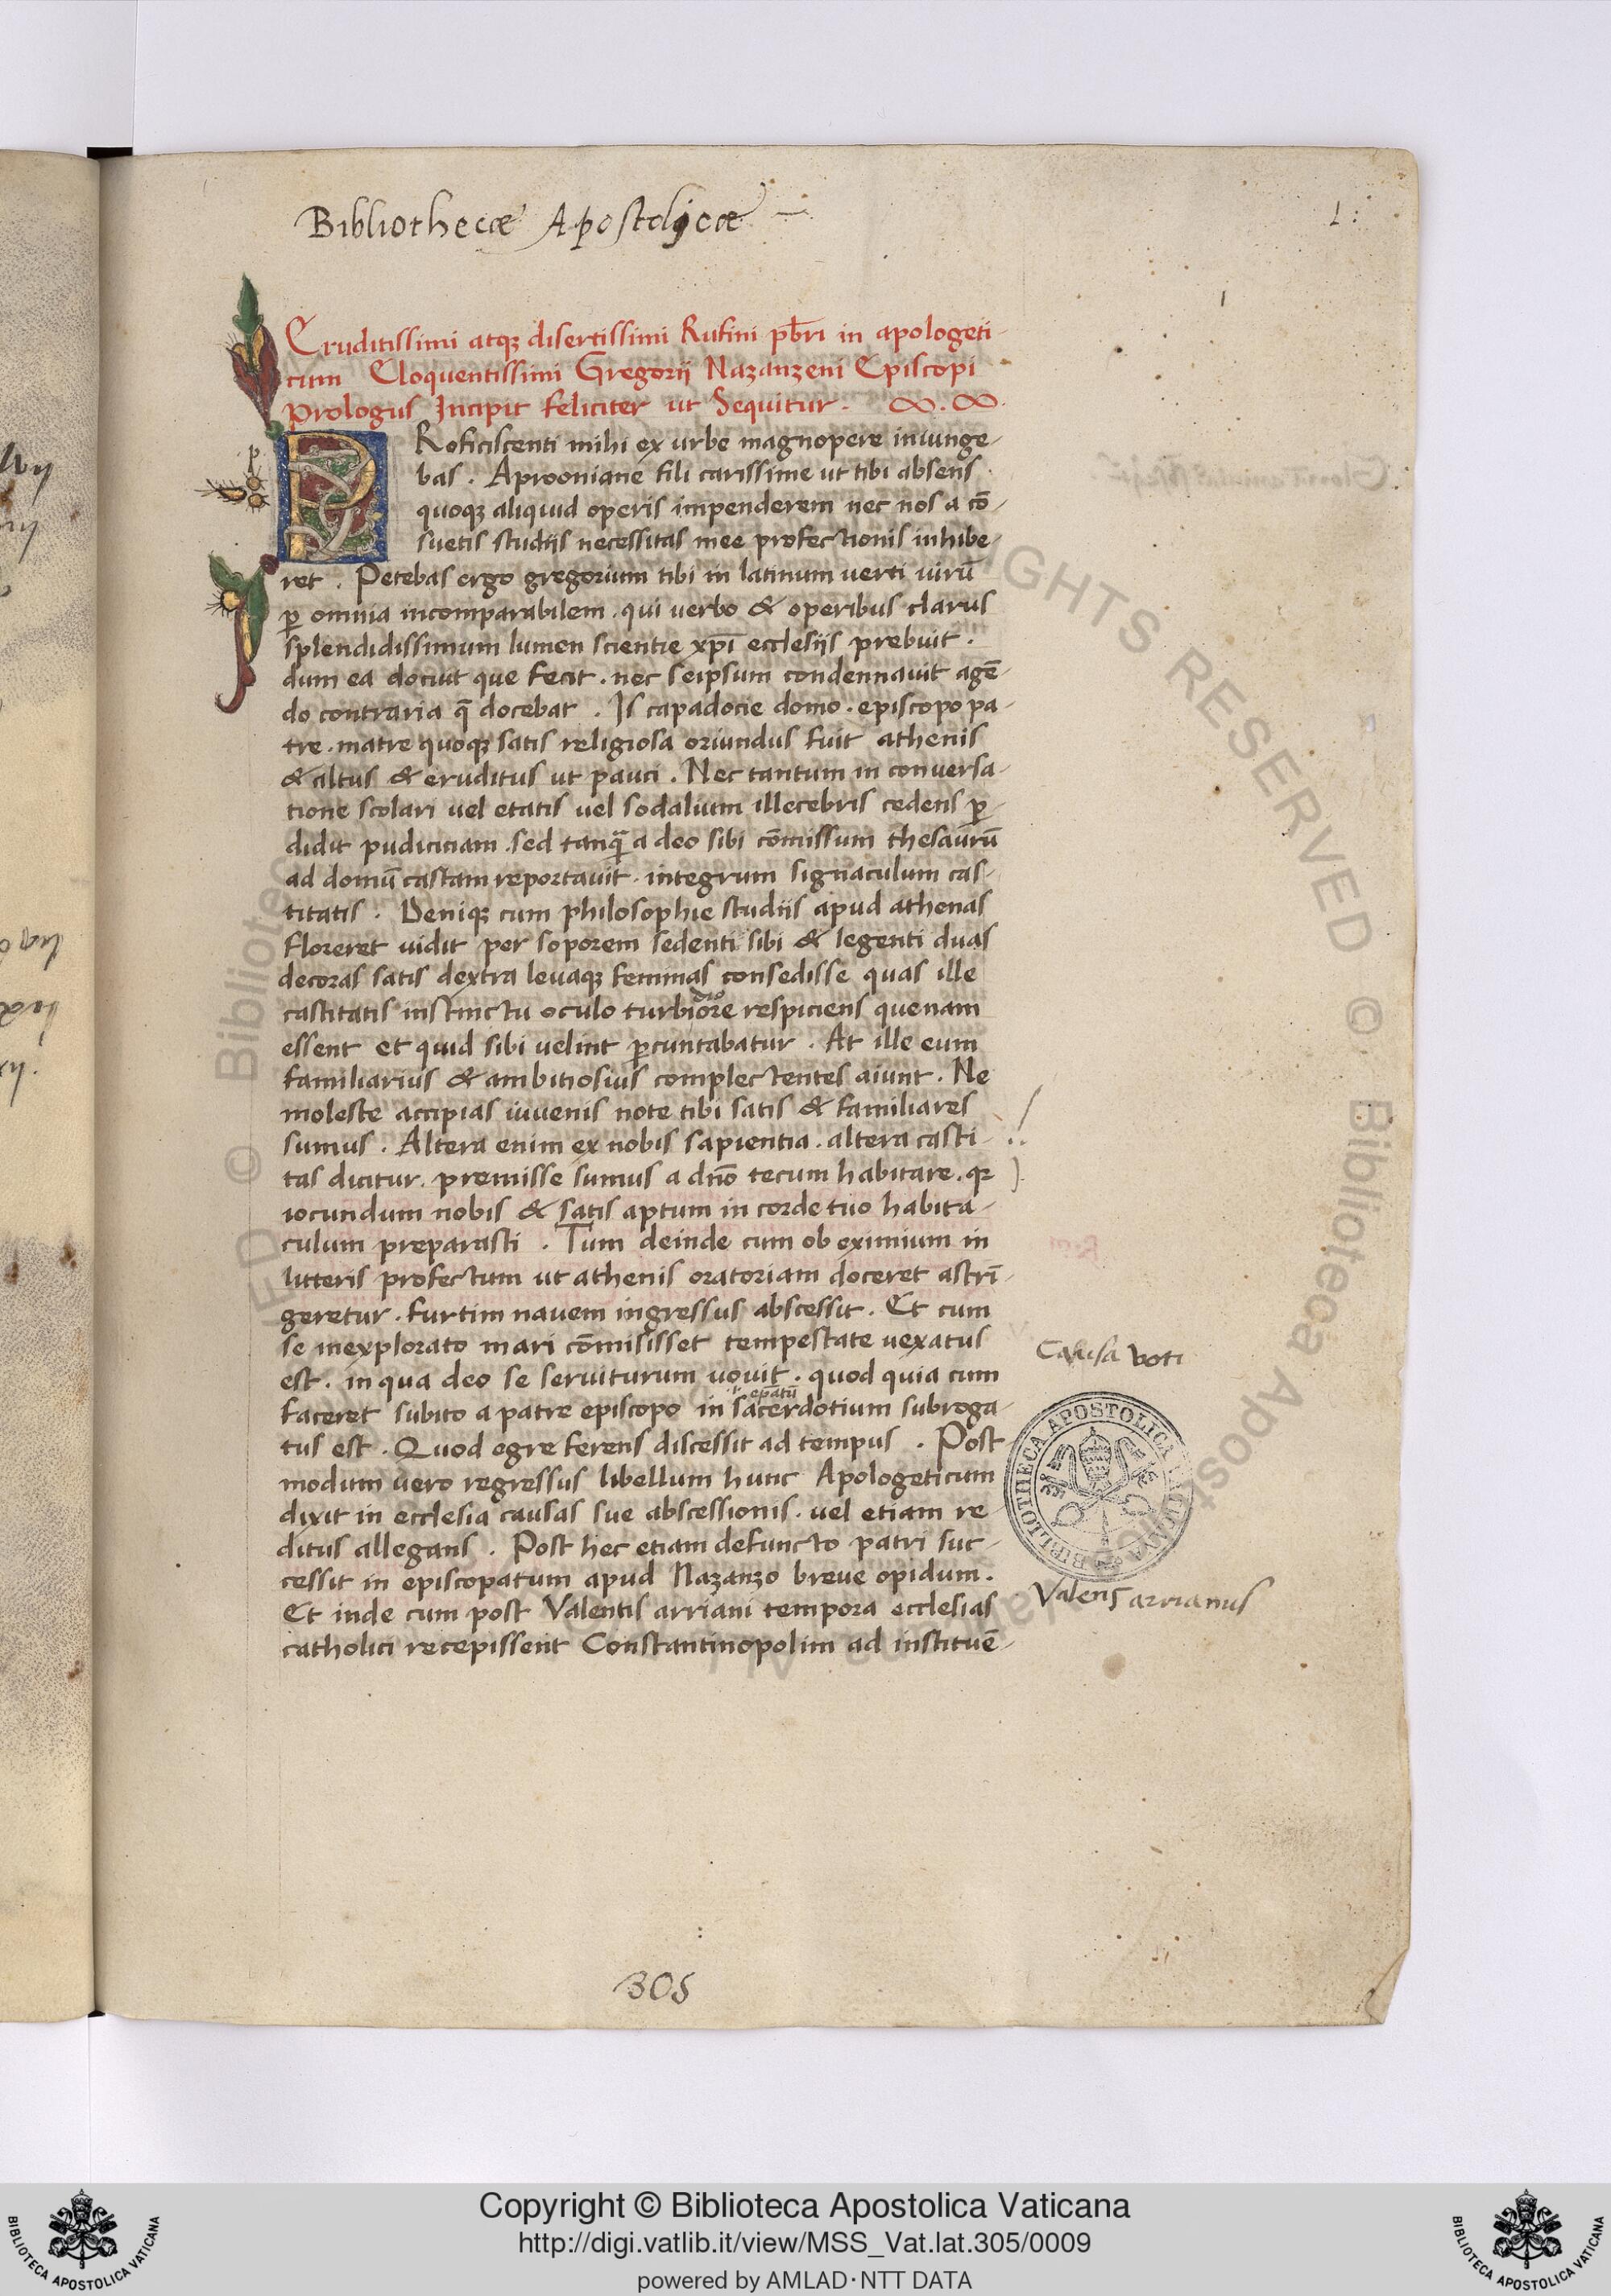 Bibliothecæ Apostolicæ
1:
1
Eruditissimi atqꝫ disertissimi Rufini pbr̄i in apologeti-
cum Eloquentissimi Gregorij Nazanzeni Episcopi
Prologus Incipit feliciter ut Sequitur.
p
PRoficiscenti mihi ex urbe magnopere iniunge-
bas. Aproniane fili carissime ut tibi absens
quoqꝫ aliquid operis impenderem nec nos a cō-
suetis studiis necessitas mee profectionis inhibe-
ret. Petebas ergo gregorium tibi in latinum uerti uirū
ꝑ omnia incomparabilem. qui uerbo & operibus clarus
splendidissimum lumen scientie xp̄i ecclesijs prebuit.
dum ea dociut que fecit. nec seipsum condennauit agē-
do contraria q̄ docebat. Is capadocie domo. episcopo pa-
tre. matre quoqꝫ satis religiosa oriundus fuit athenis
& altus & eruditus ut pauci. Nec tantum in conuersa-
tione scolari uel etatis uel sodalium illecebris cedens ꝑ-
didit pudicitiam. sed tanq̄ a deo sibi cōmissum thesaurū
ad domū castam reportauit. integrum signaculum cas-
titatis. Deniqꝫ cum philosophie studiis apud athenas
floreret uidit per soporem sedenti sibi & legenti duas
decoras satis dextra leuaqꝫ feminas consedisse quas ille
castitatis instinctu oculo turbiore respiciens quenam
essent et quid sibi uelint ꝑcuntabatur. At ille eum
familiarius & ambitiosius complectentes aiunt. Ne
moleste accipias iuuenis note tibi satis & familiares
sumus. Altera enim ex nobis sapientia. altera casti-
tas dicitur. premisse sumus a dn̄o tecum habitare. qꝛ
iocundum nobis & satis aptum in corde tuo habita-
culum preparasti. Tum deinde cum ob eximium in
litteris profectum ut athenis oratoriam doceret astrī-
geretur. furtim nauem ingressus abscessit. Et cum
se inexplorato mari cōmisisset tempestate uexatus
Causa voti
est. in qua deo se seruiturum uouit. quod quia cum
epātū
faceret subito a patre episcopo in sacerdotium subroga-
tus est. Quod egre ferens discessit ad tempus. Post
modum uero regressus libellum hunc Apologeticum
dixit in ecclesia causas sue abscessionis. uel etiam re-
ditus allegans. Post hec etiam defuncto patri suc-
cessit in episcopatum apud Nazanzo breue opidum.
Et inde cum post Valentis arriani tempora ecclesias
Valens arrianus
catholici recepissent Constantinopolim ad instituē-
BIBLIOTHECA APOSTOLICA VATICANA
305
RIGHTS RESERVED © Biblioteca Apostolica Vaticana
Copyright © Biblioteca Apostolica Vaticana
http://digi.vatlib.it/view/MSS_Vat.lat.305/0009
powered by AMLAD·NTT DATA
BIBLIOTECA APOSTOLICA VATICANA
BIBLIOTECA APOSTOLICA VATICANA